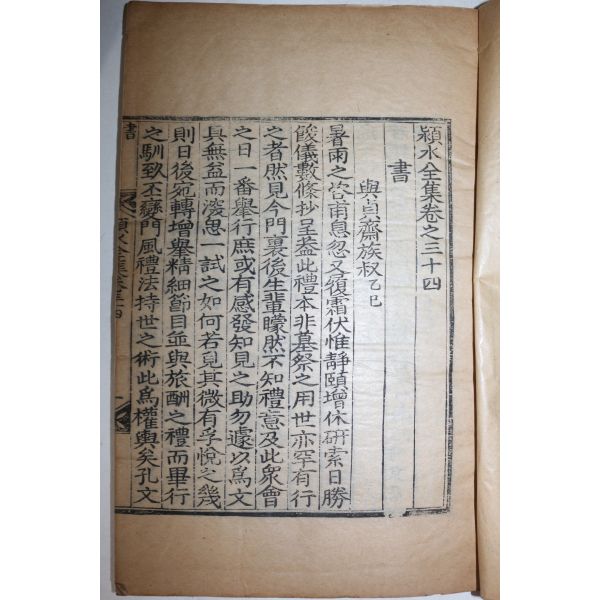 潁水全集卷之三十四
書
與貞齋族叔 乙巳
暑雨之咎甫息忽又履霜伏惟靜頤增休硏索日勝
餕儀數條抄呈盖此禮本非墓祭之用世亦罕有行
之者然見今門裏後生輩矇然不知禮意及此衆會
之日一番擧行庶或有感發知見之助勿遽以爲文
具無益而濬思一試之如何若見其微有孚悅之幾
則日後宛轉增擧精細節目並與旅酬之禮而畢行
之馴致丕變門風禮法持世之術此爲權輿矣孔文
書
潁水全集卷三十四
一